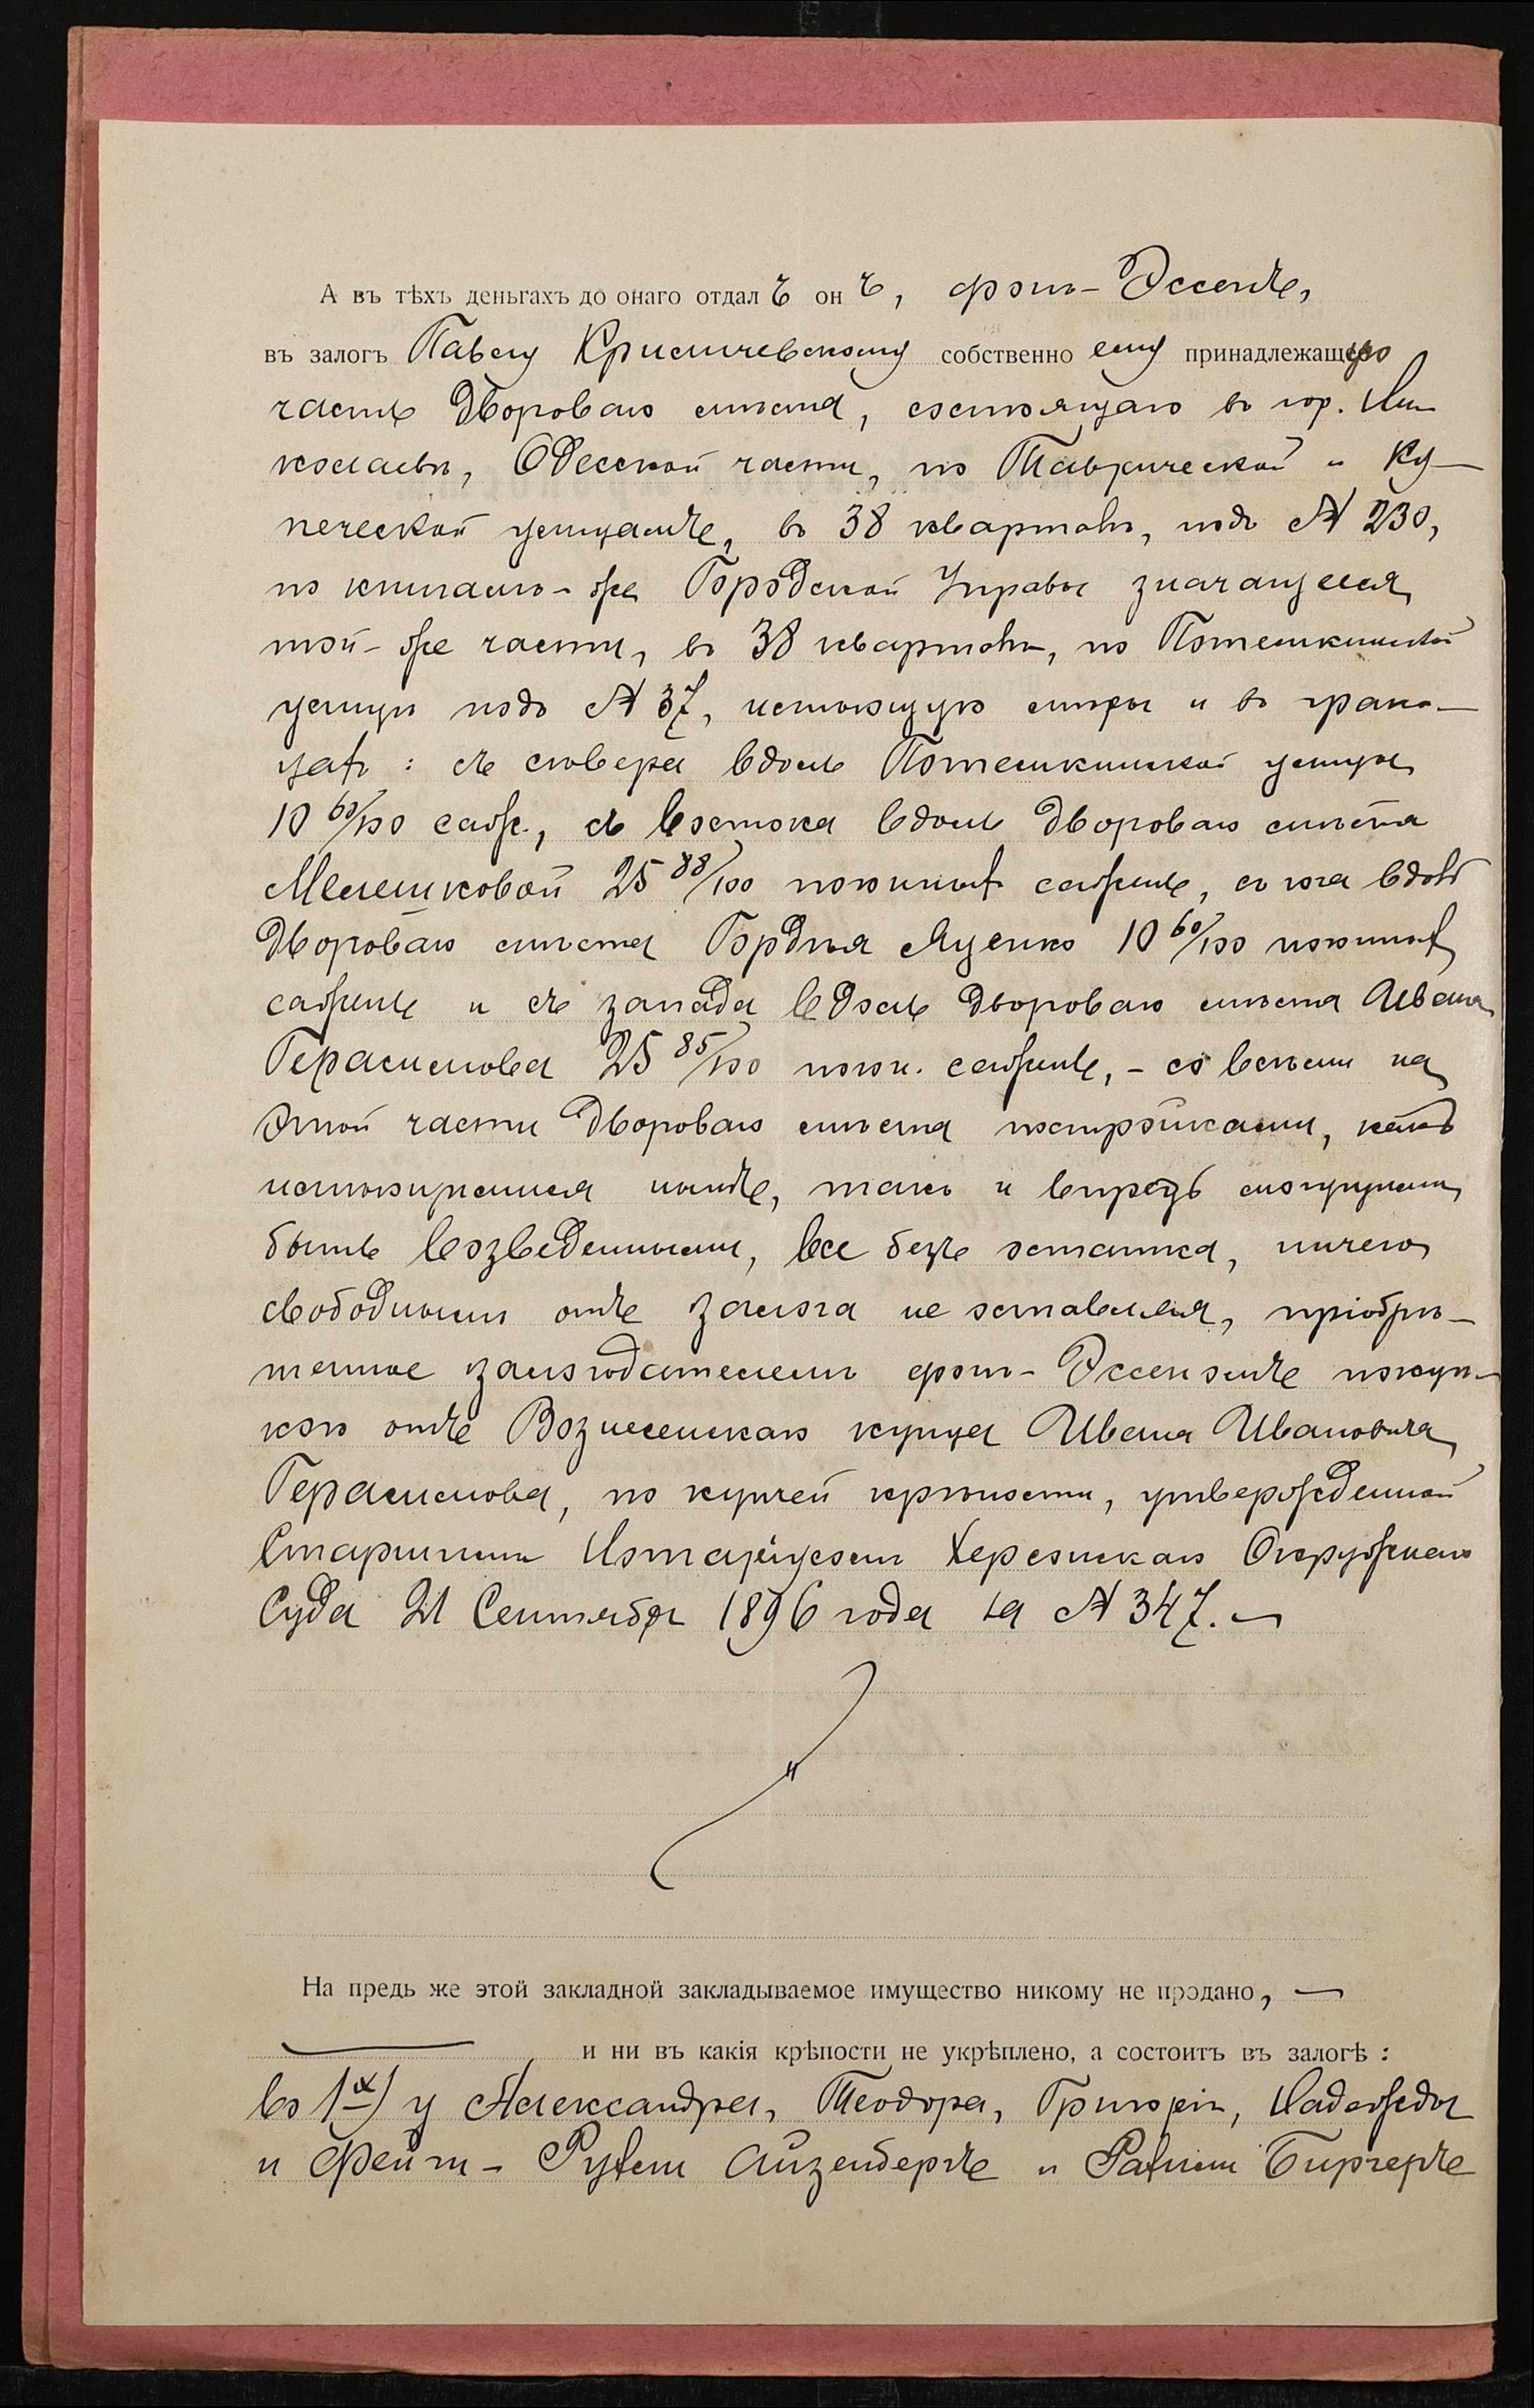 А въ тѣхъ деньгахъ до онаго отдалъ онъ, фонъ-Эссенъ,
въ залогъ Павлу Крисничевскому собственно ему принадлежащую
часть двороваго мѣста, состоящаго въ гор. Ни-
колаевѣ, Одесской части, по Таврической и Ку-
печеской улицамъ, въ 38 кварталѣ, подъ № 230,
по книгамъ-же Городской Управы значащееся
той-же части, въ 38 кварталѣ, по Потемкинской
улицѣ подъ № 37, имѣющую мѣры и въ грани-
цахъ: съ сѣвера вдоль Потемкинской улицы
10 60/100 саж., съ востока вдоль двороваго мѣста
Мелешковой 25 88/100 погонныхъ сажень, съ юга вдоль
двороваго мѣста Гордѣя Яценко 10 60/100 погонныхъ
сажень и съ запада вдоль двороваго мѣста Ивана
Герасимова 25 85/100 погон. сажень, - со всѣми на
этой части двороваго мѣста постройками, какъ
имѣющимися нынѣ, такъ и впредь могущими
быть возведенными, все безъ остатка, ничего
свободнымъ отъ залога не оставляя, пріобрѣ-
тенное залогодателемъ фонъ-Эссеномъ покуп-
кою отъ Вознесенскаго купца Ивана Ивановича
Герасимова, по купчей крѣпости, утвержденной
Старшимъ Нотаріусомъ Херсонскаго Окружнаго
Суда 21 Сентября 1896 года за № 347.
На предь же этой закладной закладываемое имущество никому не продано,
и ни въ какія крѣпости не укрѣплено, а состоитъ въ залогѣ:
во 1х) у Александра, Теодора, Григорія, Надежды
и Фейги-Рухли Айзенбергъ и Рахили Биргеръ